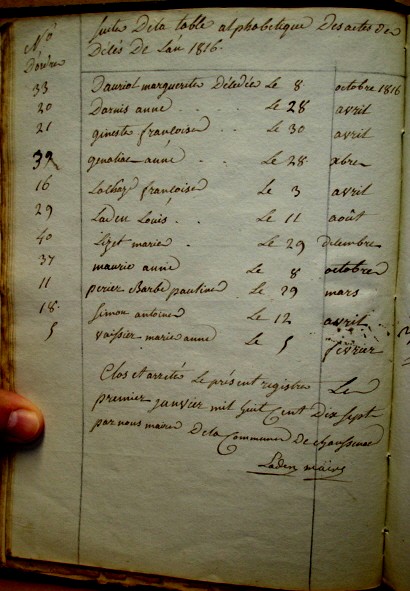 No
D'ordre
Suite De la table alphabetique Des actes de
Décés De L'an 1816.
33 Dauriol marguerite Décedée Le 8 octobre 1816
20 Daruis anne . . . Le 28 avril
21 gineste françoise . . Le 30 avril
32 anne . . Le 28 xbre
16 françoise Le 3 avril
29 Laden Louis . . Le 11 août
40 Lizet marie . Le 29 décembre
37 maurie anne Le 8 octobre
11 perier Barbe pauline Le 29 mars
18 Simon antoine Le 12 avril
5 vaissier marie anne Le 5 février
Clos et arrété Le présent registre Le
premier janvier mil huit Cent Dix Sept
par nous maire De la Commune De chaussenac
Laden maire